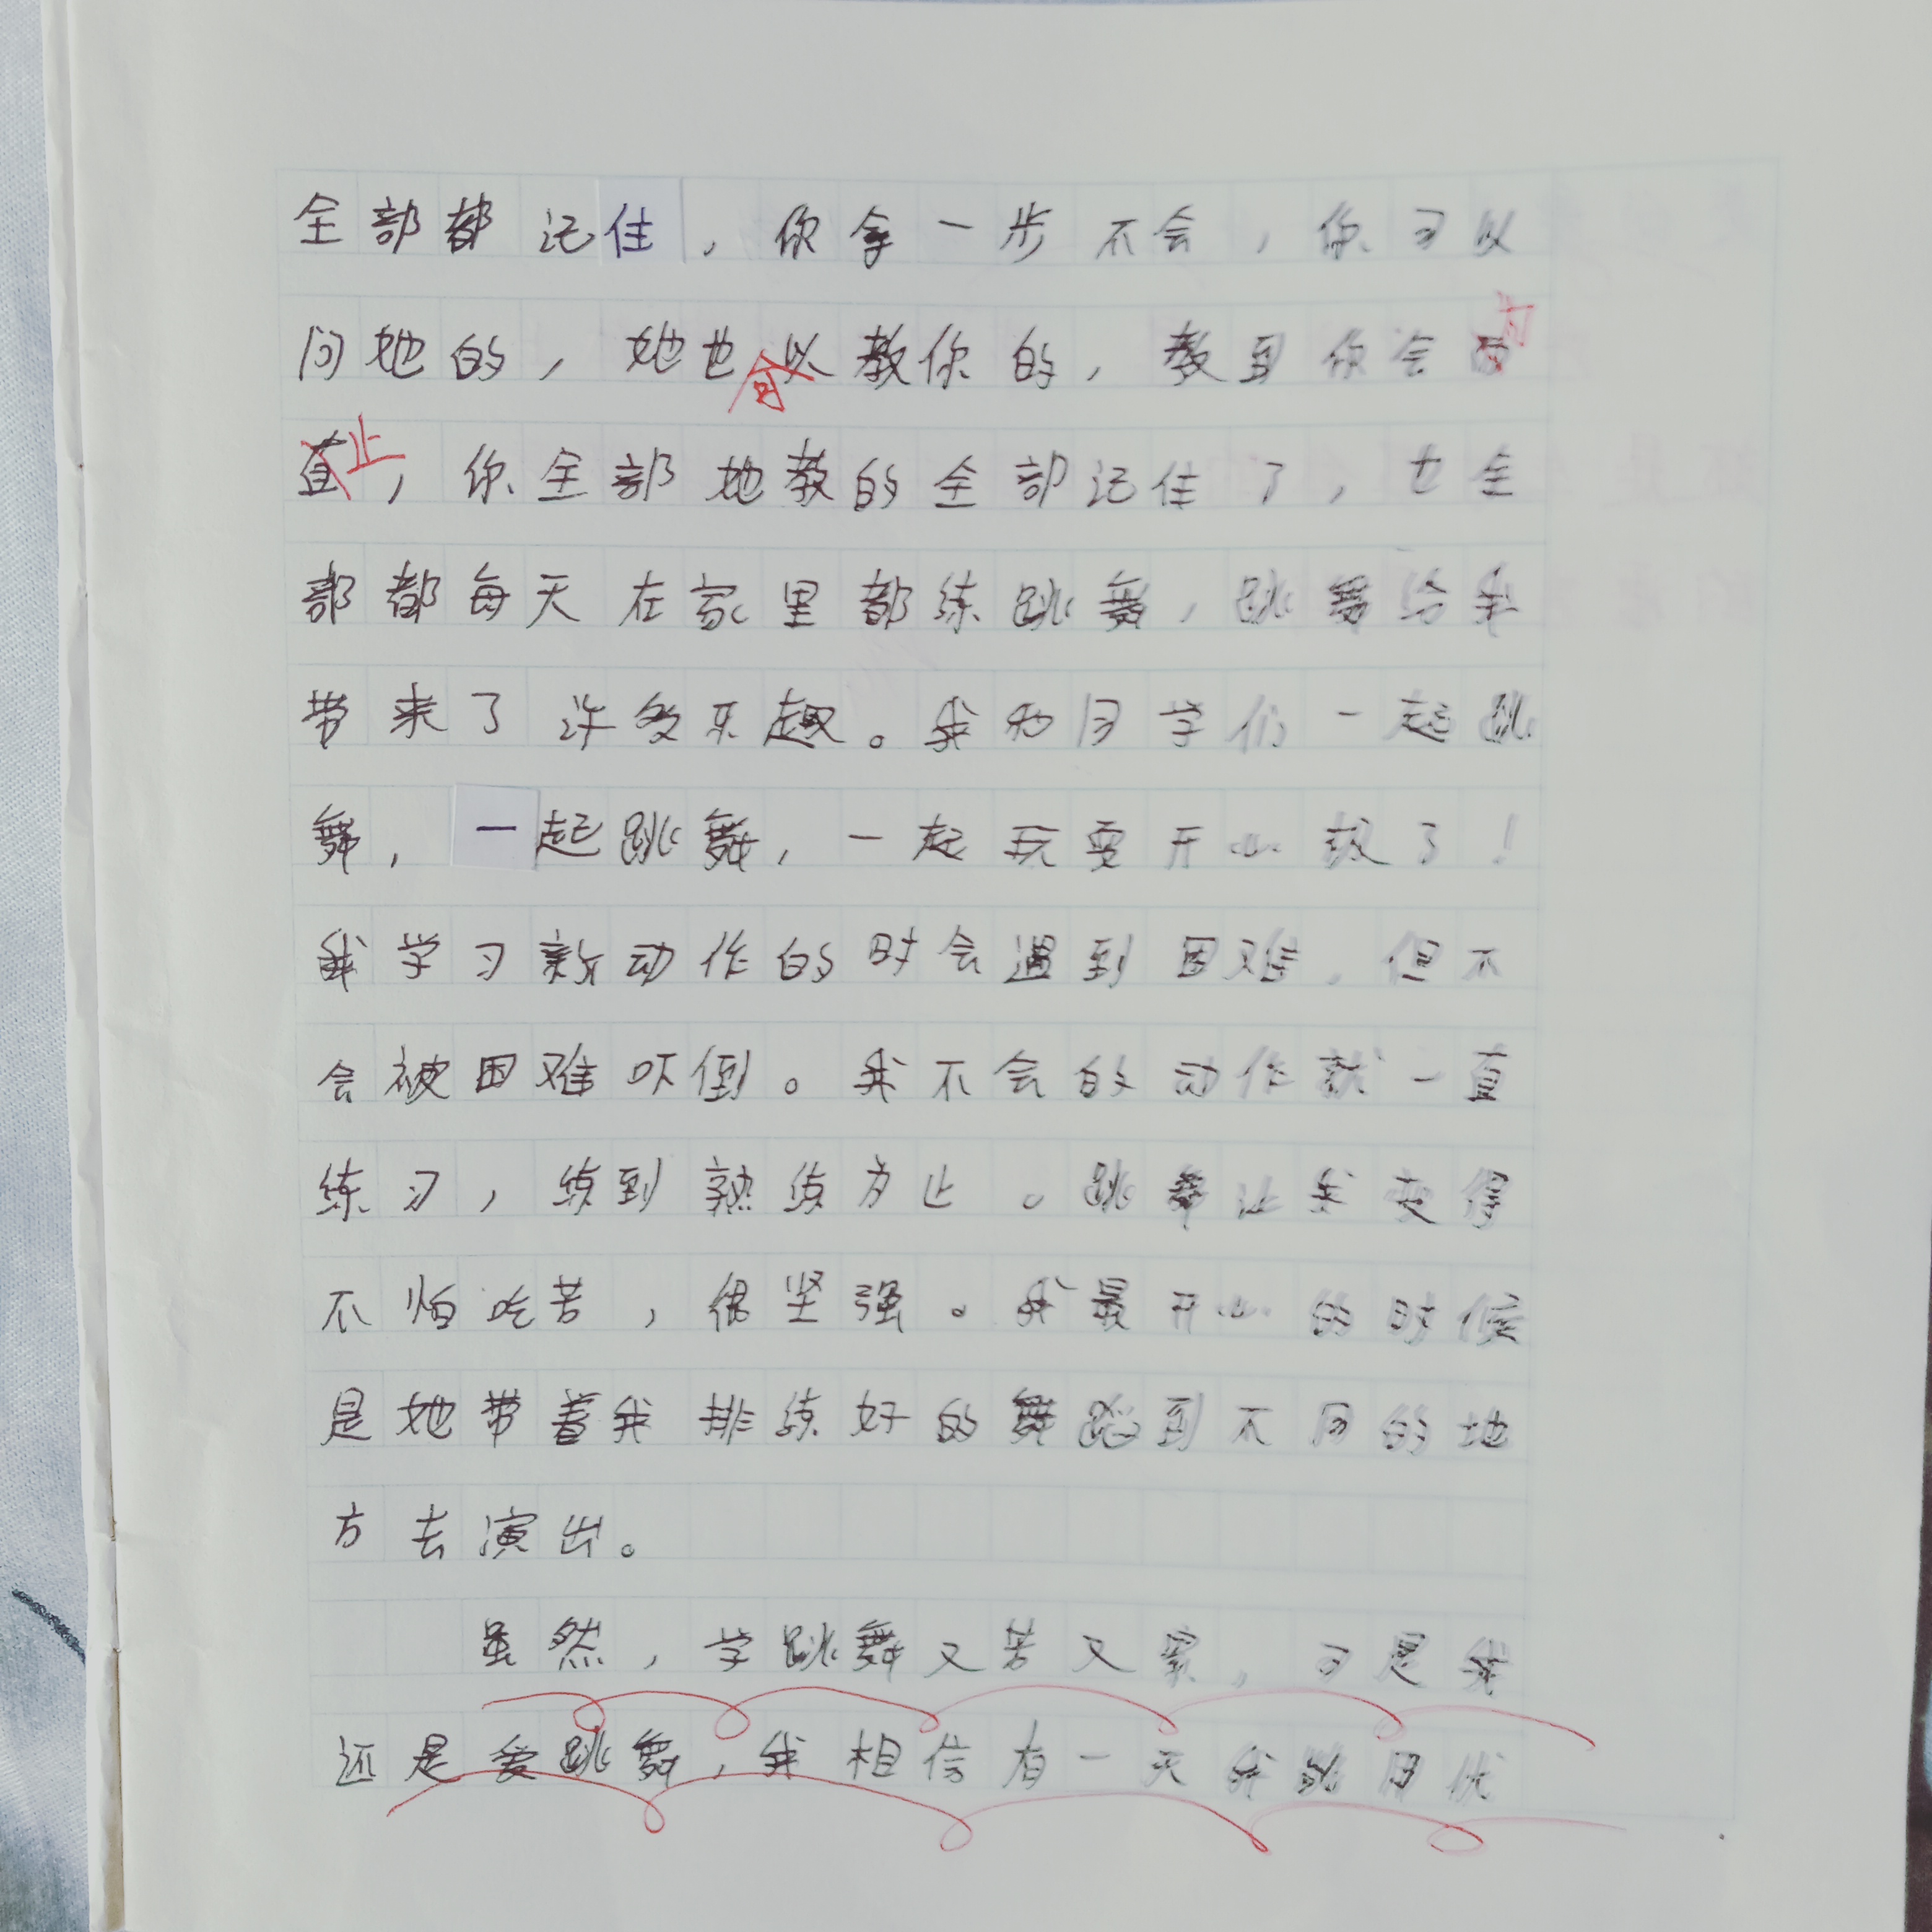 全部都记住，你拿一步不会，你可以
问她的，她也会以教你的，教到你会为
止，你全部她教的全部记住了，也全
部都每天在家里都练跳舞，跳舞给我
带来了许多乐趣。我和同学们一起跳
舞，一起跳舞，一起玩耍开心极了！
我学习新动作的时会遇到困难，但不
会被困难吓倒。我不会的动作就一直
练习，练到熟练为止。跳舞让我变得
不怕吃苦，很坚强。我最开心的时候
是她带着我排练好的舞蹈到不同的地
方去演出。
虽然，学跳舞又苦又累，可是我
还是爱跳舞，我相信有一天我能用优